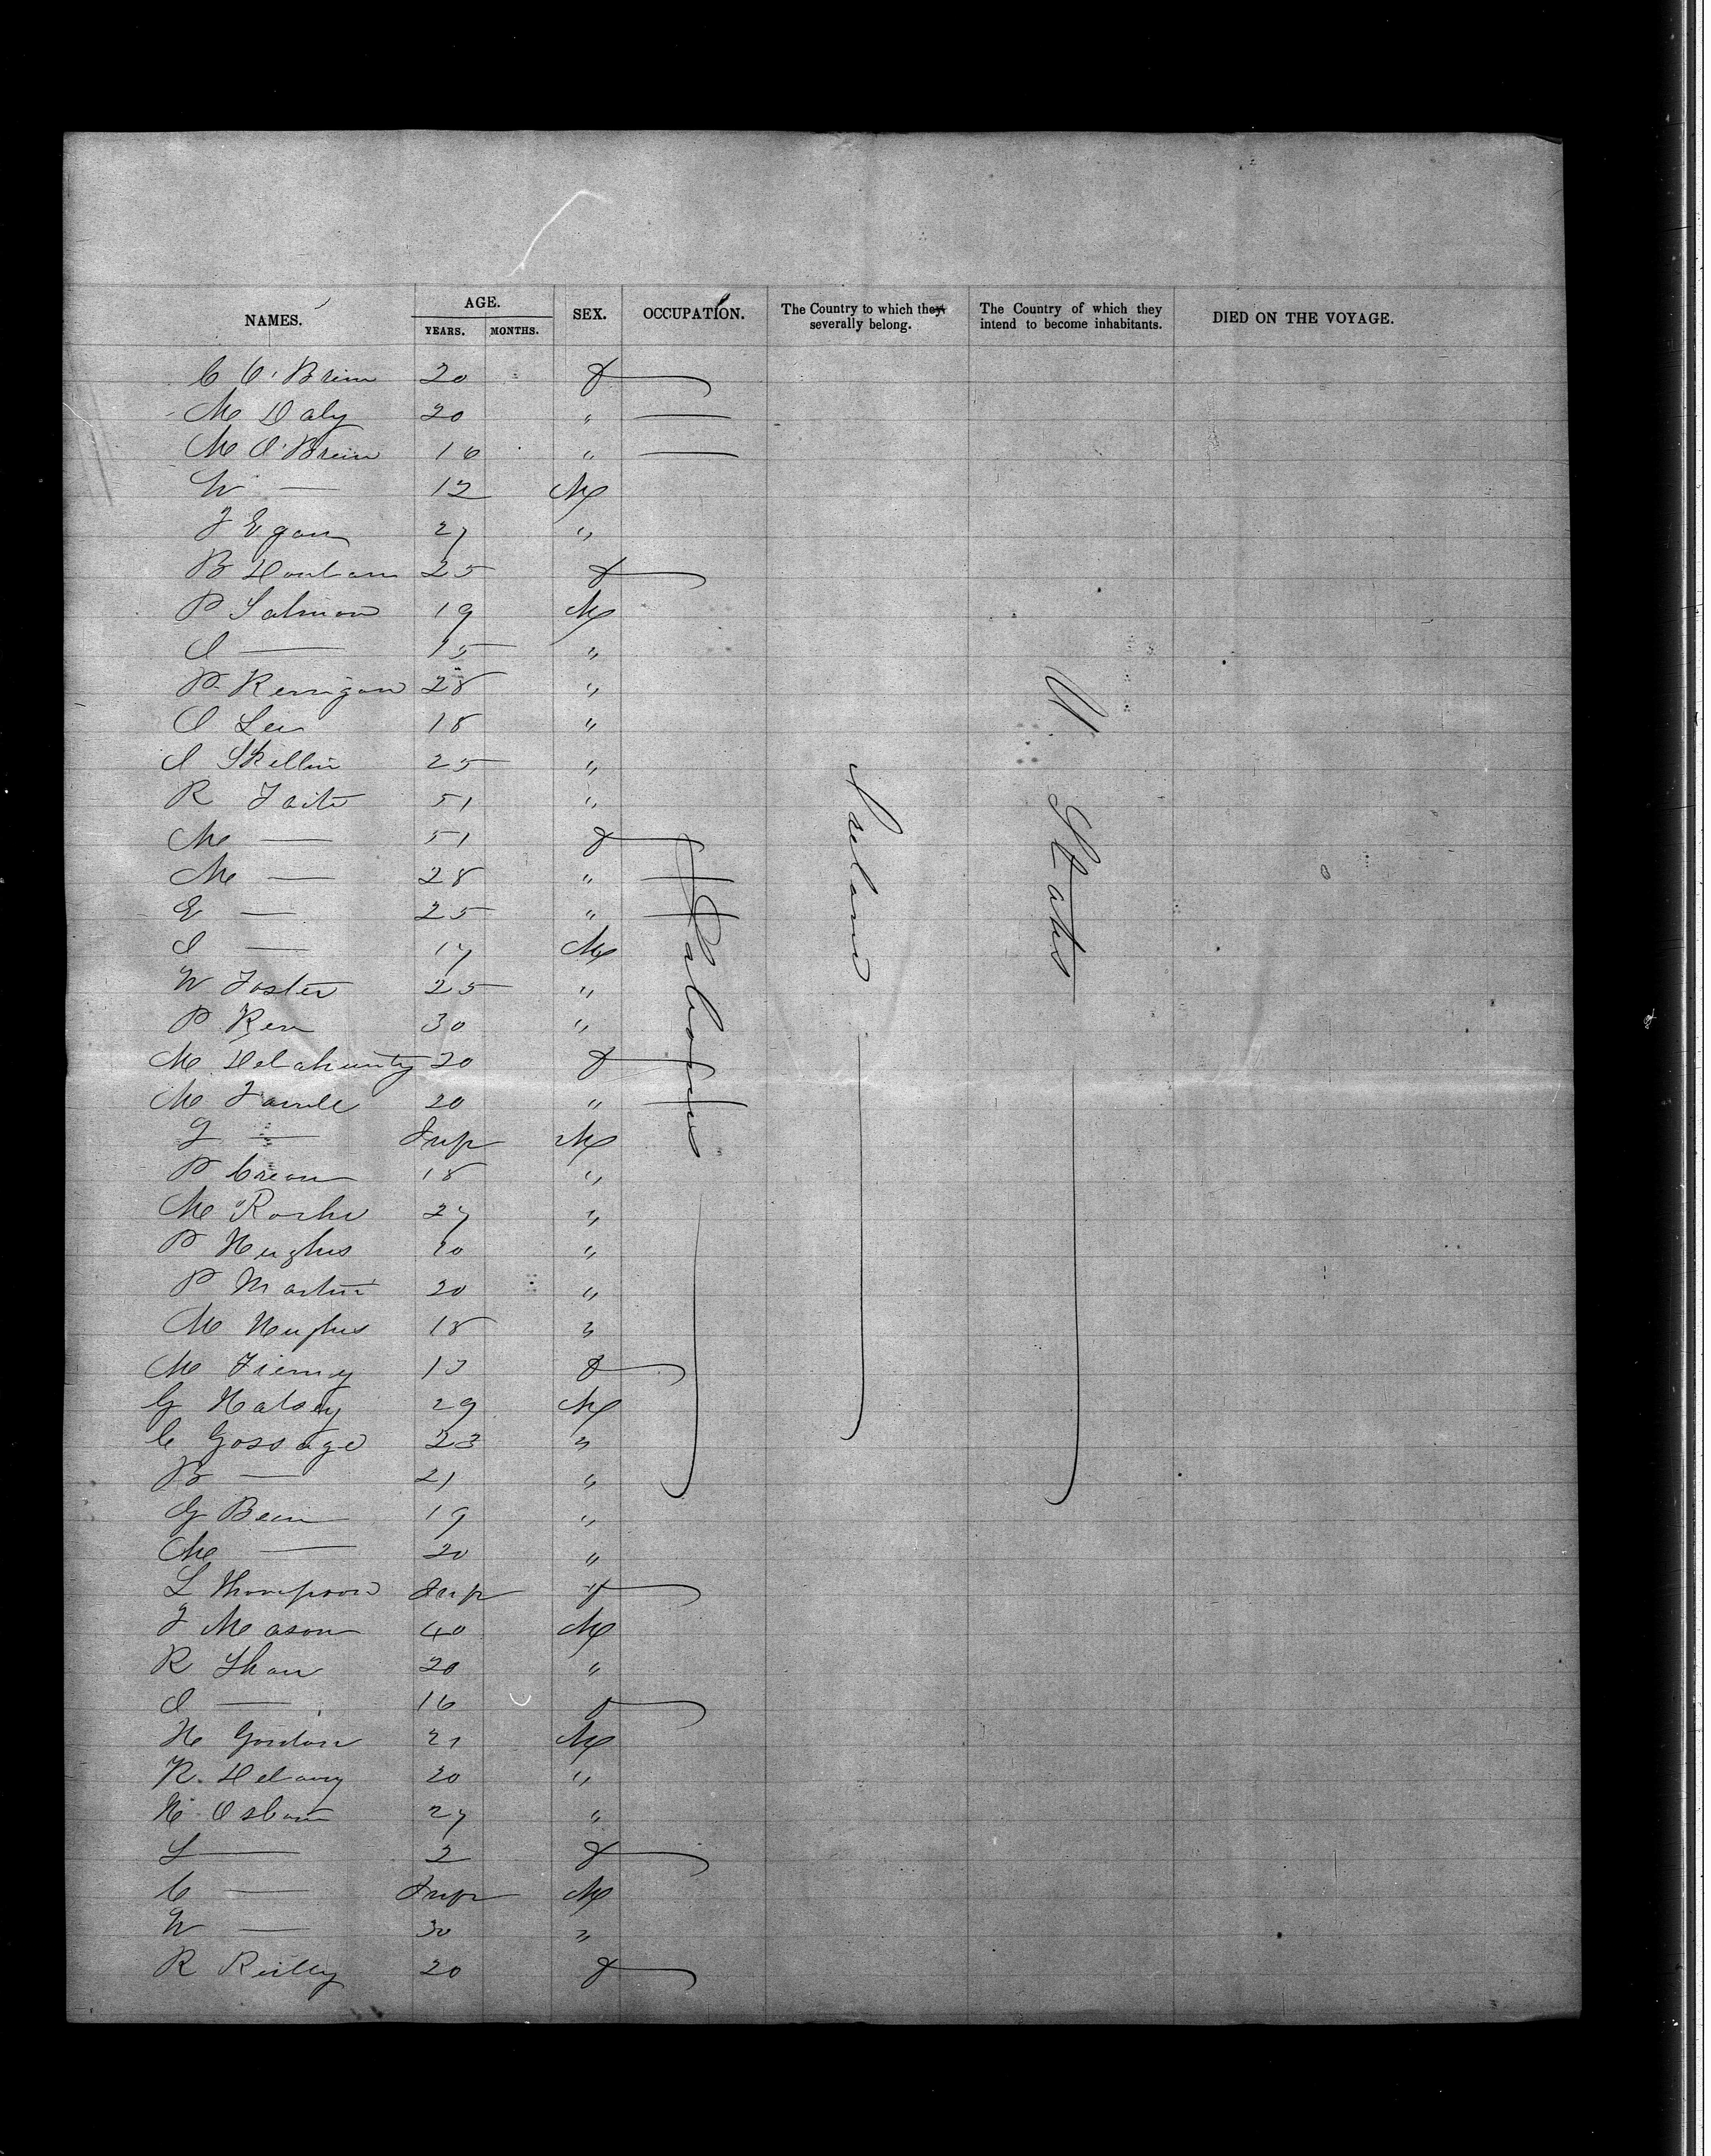 NAMES. AGE. SEX. OCCUPATION. The Country to which they severally belong. The Country of which they intend to become inhabitants. DIED ON THE VOYAGE.
YEARS. MONTHS.
C O'Brien 20 f
M Daly 20 " —
M O'Brien 16 " —
W — 12 M
J Egan 27 "
B 25 f
P Salmon 19 M
J — 15 "
P Kerrigan 28 "
J Lee 18 "
J Skellin 25 "
R Taite 51 "
M — 51 f
M — 28 "
E — 25 "
J — 17 M
W Foster 25 "
P Ken 30 "
M Delahunty 20 f
M 20 "
J — Inf M
P Crean 18 "
M Roche 27 "
P Hughes 20 "
P Martin 20 "
M Hughes 18 "
M Tierney 13 f
G Halsey 29 M
C Gossage 23 "
B — 21 "
G 19 "
M — 20 "
L Thompson Inf f
J Mason 40 M
R Shaw 20 "
J — 16 f
H Gordon 21 M
R. Delany 20 "
H Osborn 27 "
L — 2 f
C — Inf M
W — 30 "
R Reilly 20 f
Labourers
Ireland
U. States